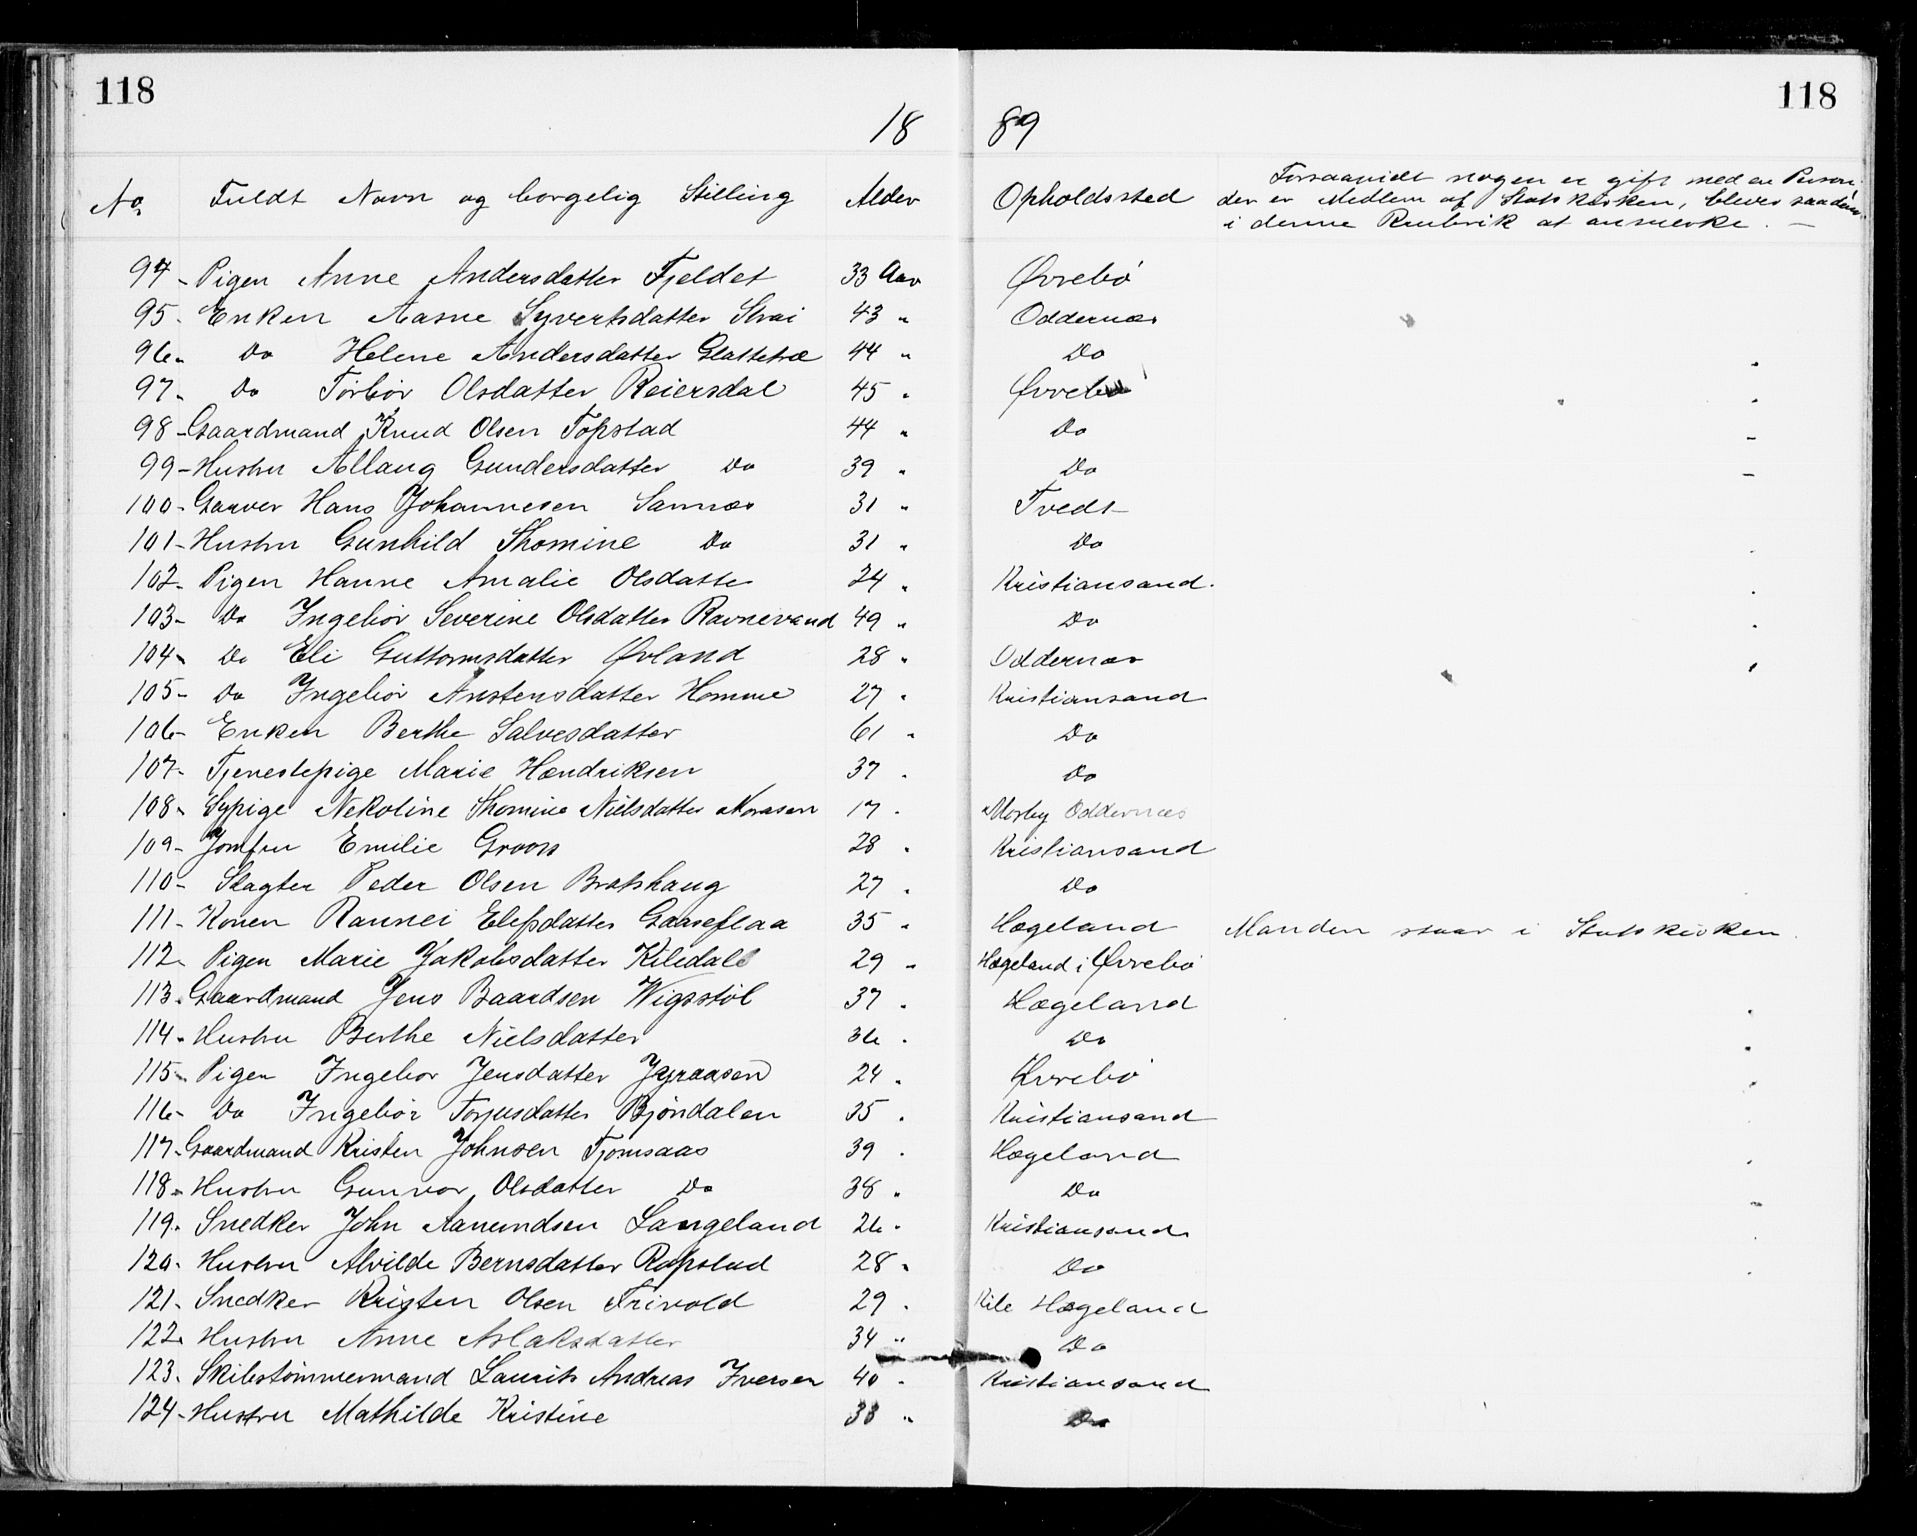 118 118
18 89
No Fuldt Navn og borgelig Stilling Alder Opholdssted Forsaavidt nogen er gift med en Person
der er Medlem af Statskirken, bliver saadan
i denne Rubrik at anmerke. —
94 - Pigen Anne Andersdatter Fjeldet 33 Aar Øvrebö
95 - Enken Aasne Syvertsdatter Strai 43 " Oddernæs
96 - Do Helene Andersdatter Glattetræ 44 " Do
97 - Do Törbör Olsdatter Reiersdal 45 " Øvrebö
98 - Gaardmand Knud Olsen Topstad 44 " Do
99 - Hustru Allaug Gundersdatter Do 39 " Do
100 - Garver Hans Johannesen Sannæs 31 " Tvedt
101 - Hustru Gunhild Thomine Do 31 " Do
102 - Pigen Hanne Amalie Olsdatter 24 " Kristiansand.
103 - Do Ingebör Severine Olsdatter Ravnevand 49 " Do
104 - Do Eli Guttormsdatter Øvland 28 " Oddernæs
105 - Do Ingebör Anstensdatter Homme 27 " Kristiansand
106 - Enken Berthe Salvesdatter 61 " Do
107 - Tjenestepige Marie Hendriksen 37 " Do
108 - Sypige Nekoline Thomine Nielsdatter 17 " Mosby Oddernæs
109 - Jomfru Emilie Groos 28 " Kristiansand
110 - Slagter Peder Olsen Bratshaug 27 " Do
111 - Konen Rannei Elefsdatter Gaaseflaa 35 " Hægeland Manden staar i Statskirken.
112 - Pigen Marie Jakobsdatter Kiledal 29 " Hægeland i Øvrebö
113 - Gaardmand Jens Baardsen Wigsstöl 37 " Hægeland
114 - Hustru Berthe Nielsdatter 36 " Do
115 - Pigen Ingebor Jensdatter 24 " Øvrebö
116 - Do Ingebör Torjusdatter Bjöndalen 35 " Kristiansand
117 - Gaardmand Kristen Johnsen Tjomsaas 39 " Hægeland
118 - Hustru Gunvor Olsdatter Do 38 " Do
119 - Snedker John Aanundsen Langeland 26 " Kristiansand
120 - Hustru Alvilde Bernsdatter Rapstad 28 " Do
121 - Snedker Kristen Olsen Trivold 29 " Kile Hægeland
122 - Hustru Anne Aslaksdatter 34 " Do
123 - Skibstömmermand Laurits Andreas Iversen 40 " Kristiansand
124 - Hustru Mathilde Kristine 38 " Do